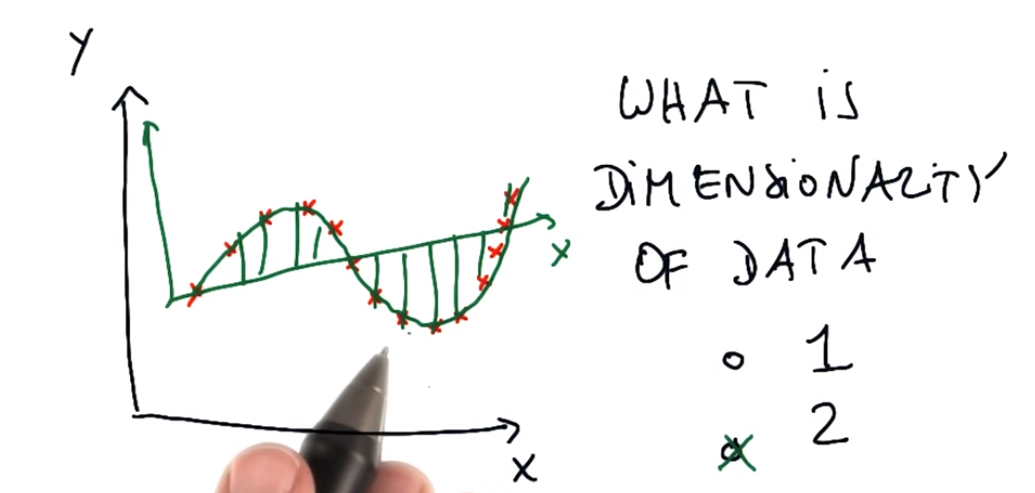 Y
WHAT iS
DiMENSiONALiTY
OF DATA
X
1
2
X